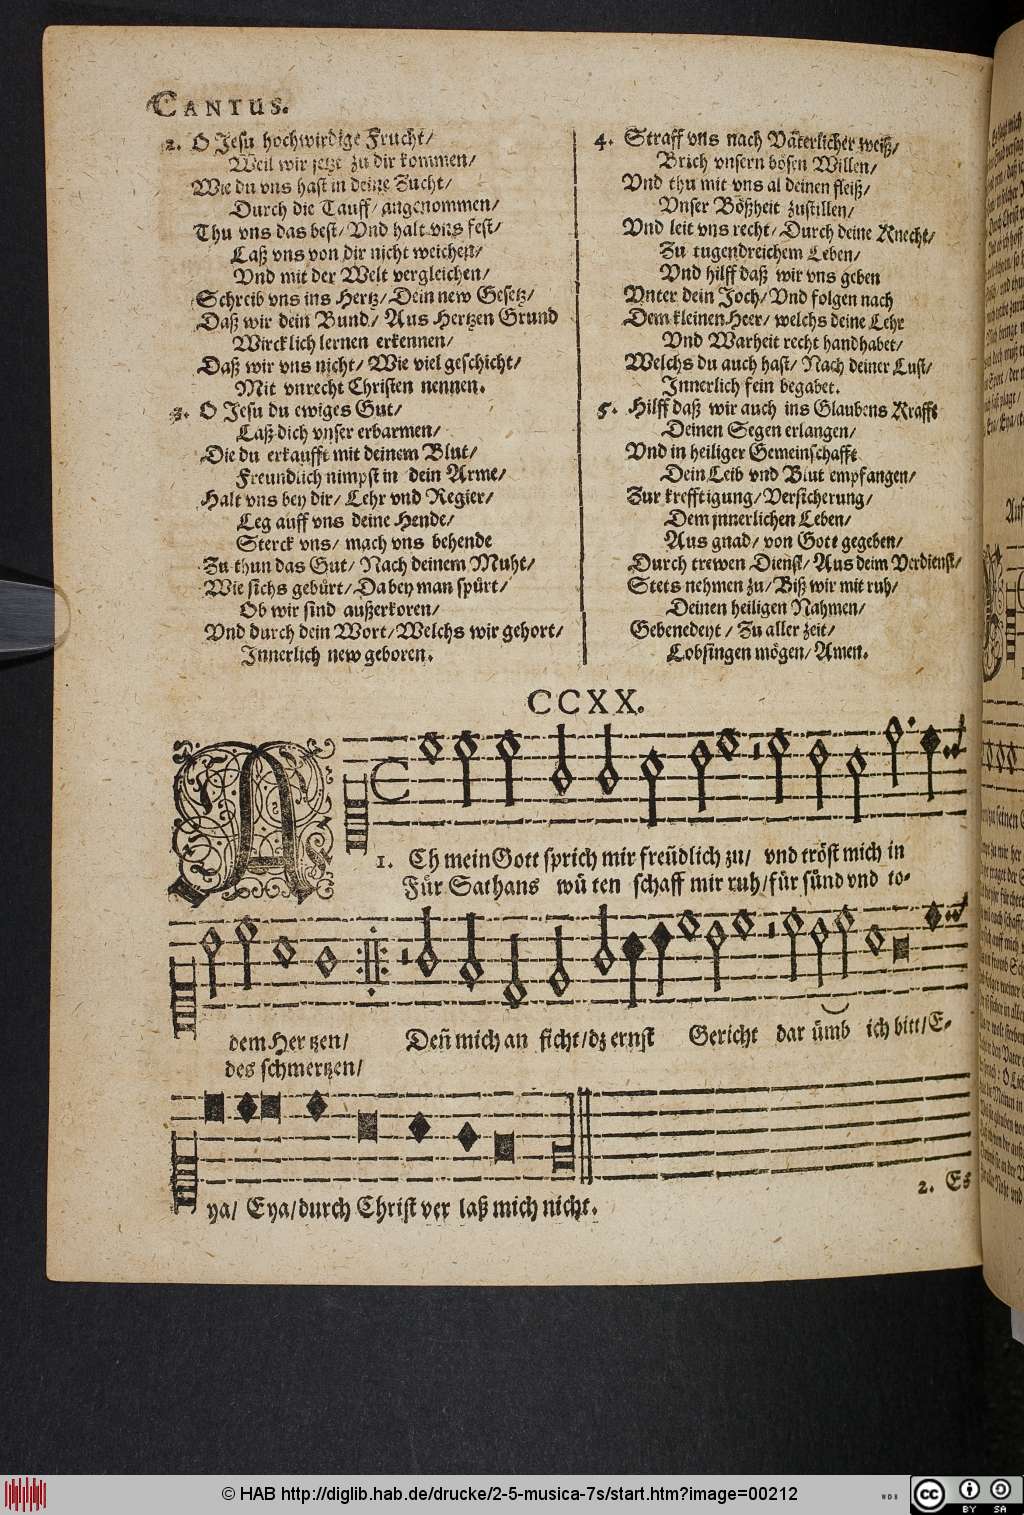 CANTUS.
2. O Jesu hochwirdige Frucht/
Weil wir jetzt zu dir kommen/
Wie du vns hast in deine Zucht/
Durch die Tauff/ angenommen/
Thu vns das best/ Vnd halt vns fest/
Laß vns von dir nicht weichen/
Vnd mit der Welt vergleichen/
Schreib vns ins Hertz/ Dein new Gesetz/
Daß wir dein Bund/ Aus Hertzen Grund
Wircklich lernen erkennen/
Daß wir vns nicht/ Wie viel geschicht/
Mit vnrecht Christen nennen.
3. O Jesu du ewiges Gut/
Laß dich vnser erbarmen/
Die du erkaufft mit deinem Blut/
Freundlich nimpst in dein Arme/
Halt vns bey dir/ Lehr vnd Regier/
Leg auff vns deine Hende/
Sterck vns/ mach vns behende
Zu thun das Gut/ Nach deinem Muht/
Wie sichs gebürt/ Da bey man spürt/
Ob wir sind außerkoren/
Vnd durch dein Wort/ Welchs wir gehort/
Innerlich new geboren.
4. Straff vns nach Väterlicher weiß/
Brich vnsern bösen Willen/
Vnd thu mit vns al deinen fleiß/
Vnser Bößheit zustillen/
Vnd leit vns recht/ Durch deine Knecht/
Zu tugendreichem Leben/
Vnd hilff daß wir vns geben
Vnter dein Joch/ Vnd folgen nach
Dem kleinen Heer/ welchs deine Lehr
Vnd Warheit recht handhabet/
Welchs du auch hast/ Nach deiner Lust/
Innerlich fein begabet.
5. Hilff daß wir auch ins Glaubens Krafft
Deinen Segen erlangen/
Vnd in heiliger Gemeinschafft
Dein Leib vnd Blut empfangen/
Zur krefftigung/ Versicherung/
Dem jnnerlichen Leben/
Aus gnad/ von Gott gegeben/
Durch trewen Dienst/ Aus deim Verdienst/
Stets nehmen zu/ Biß wir mit ruh/
Deinen heiligen Nahmen/
Gebenedeyt/ Zu aller zeit/
Lobsingen mögen/ Amen.
CCXX.
1. ACh mein Gott sprich mir freüdlich zu/ vnd tröst mich in
Für Sathans wü ten schaff mir ruh/ für sünd vnd to-
dem Her tzen/ Deñ mich an ficht/ dz ernst Gericht dar ümb ich bitt/ E-
des schmertzen/
ya/ Eya/ durch Christ ver laß mich nicht.
2. Es
© HAB http://diglib.hab.de/drucke/2-5-musica-7s/start.htm?image=00212
WDB
cc
BY SA